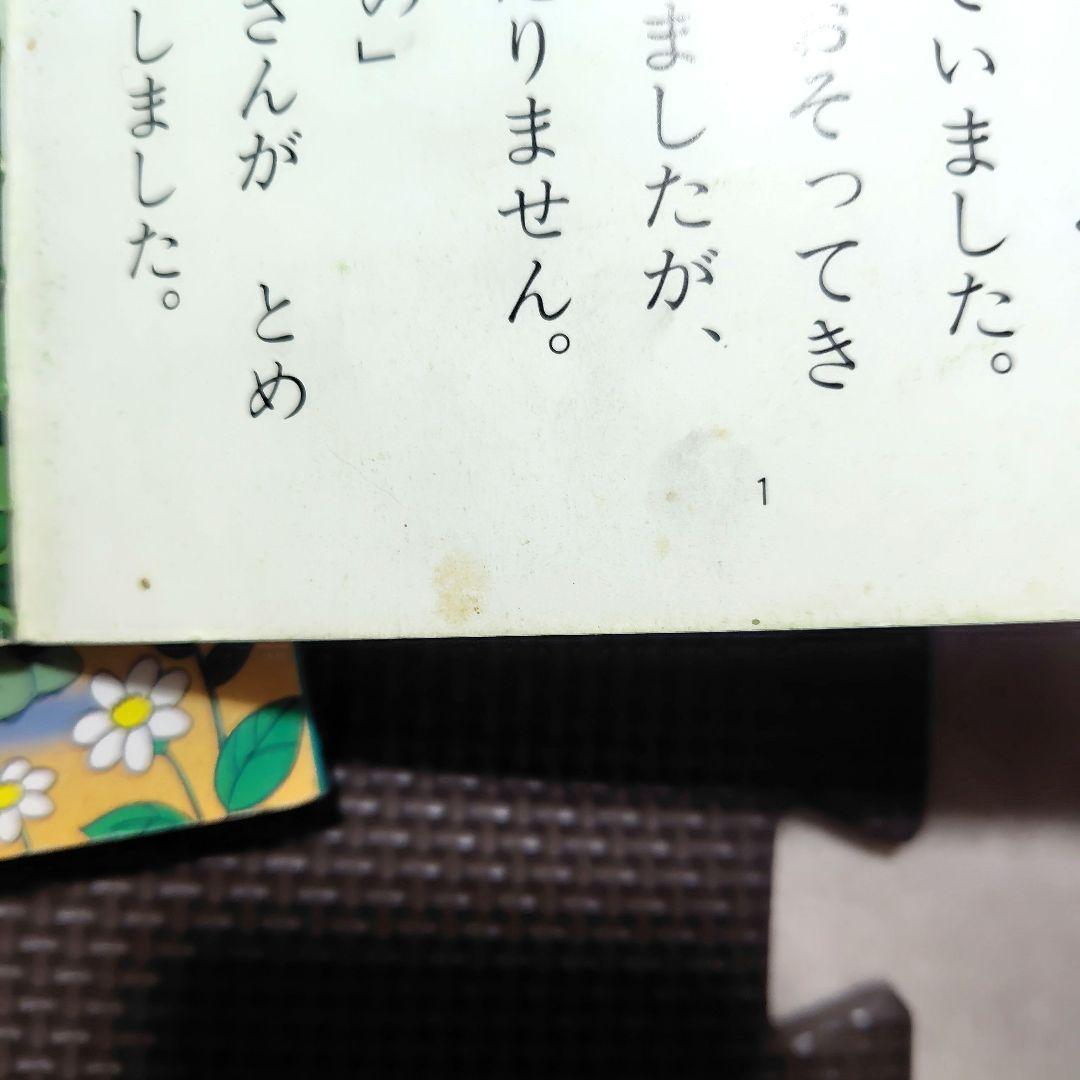 いました。
おそってき
ましたが、
りません。
の」
さんが とめ
しました。
1